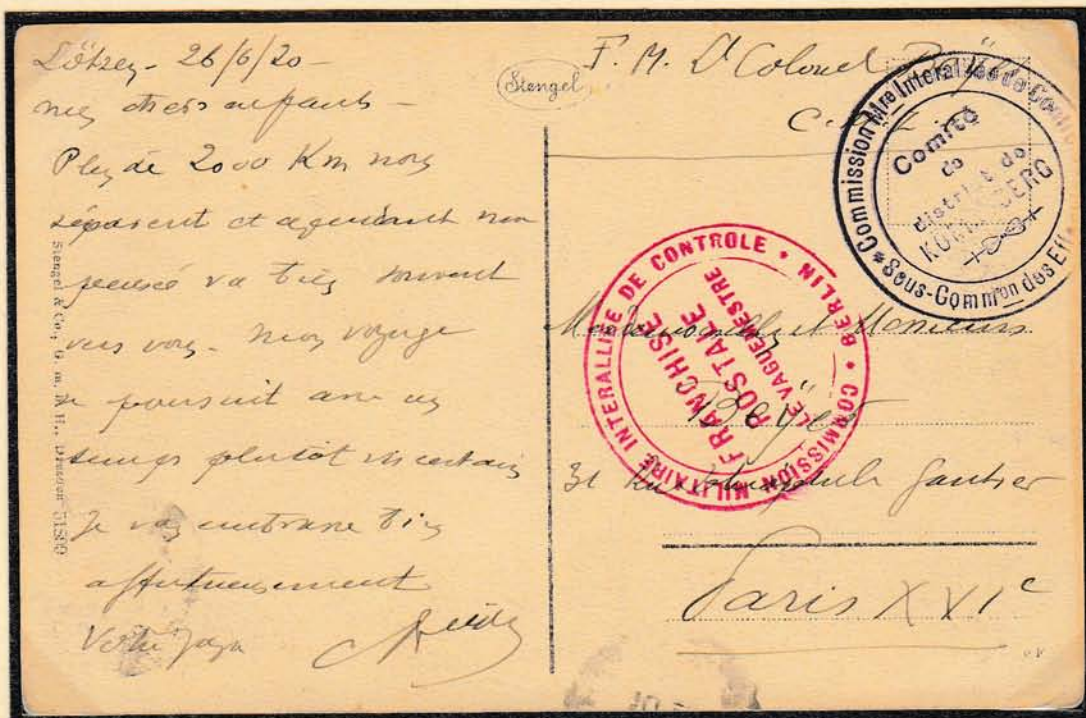 Lötzen - 26/6/20 -
mes chers enfants -
Plus de 2000 Km nous
séparent et cependant ma
pensée va bien souvent
vers vous. mon voyage
se poursuit avec un
temps plutôt incertain
Je vous embrasse bien
affectueusement
Votre papa
Stengel & Co., G. m. b. H., Dresden 51899
Stengel
F. M. Lt Colonel
Commission Mre Interalliée de
Sous-Common des Eff
Comité
de
district de
KOENIGSBERG
COMMISSION MILITAIRE INTERALLIÉE DE CONTROLE • BERLIN
FRANCHISE
POSTALE
LE VAGUEMESTRE
Mademoiselle et Messieurs
31 Rue Théophile Gautier
Paris XVIe